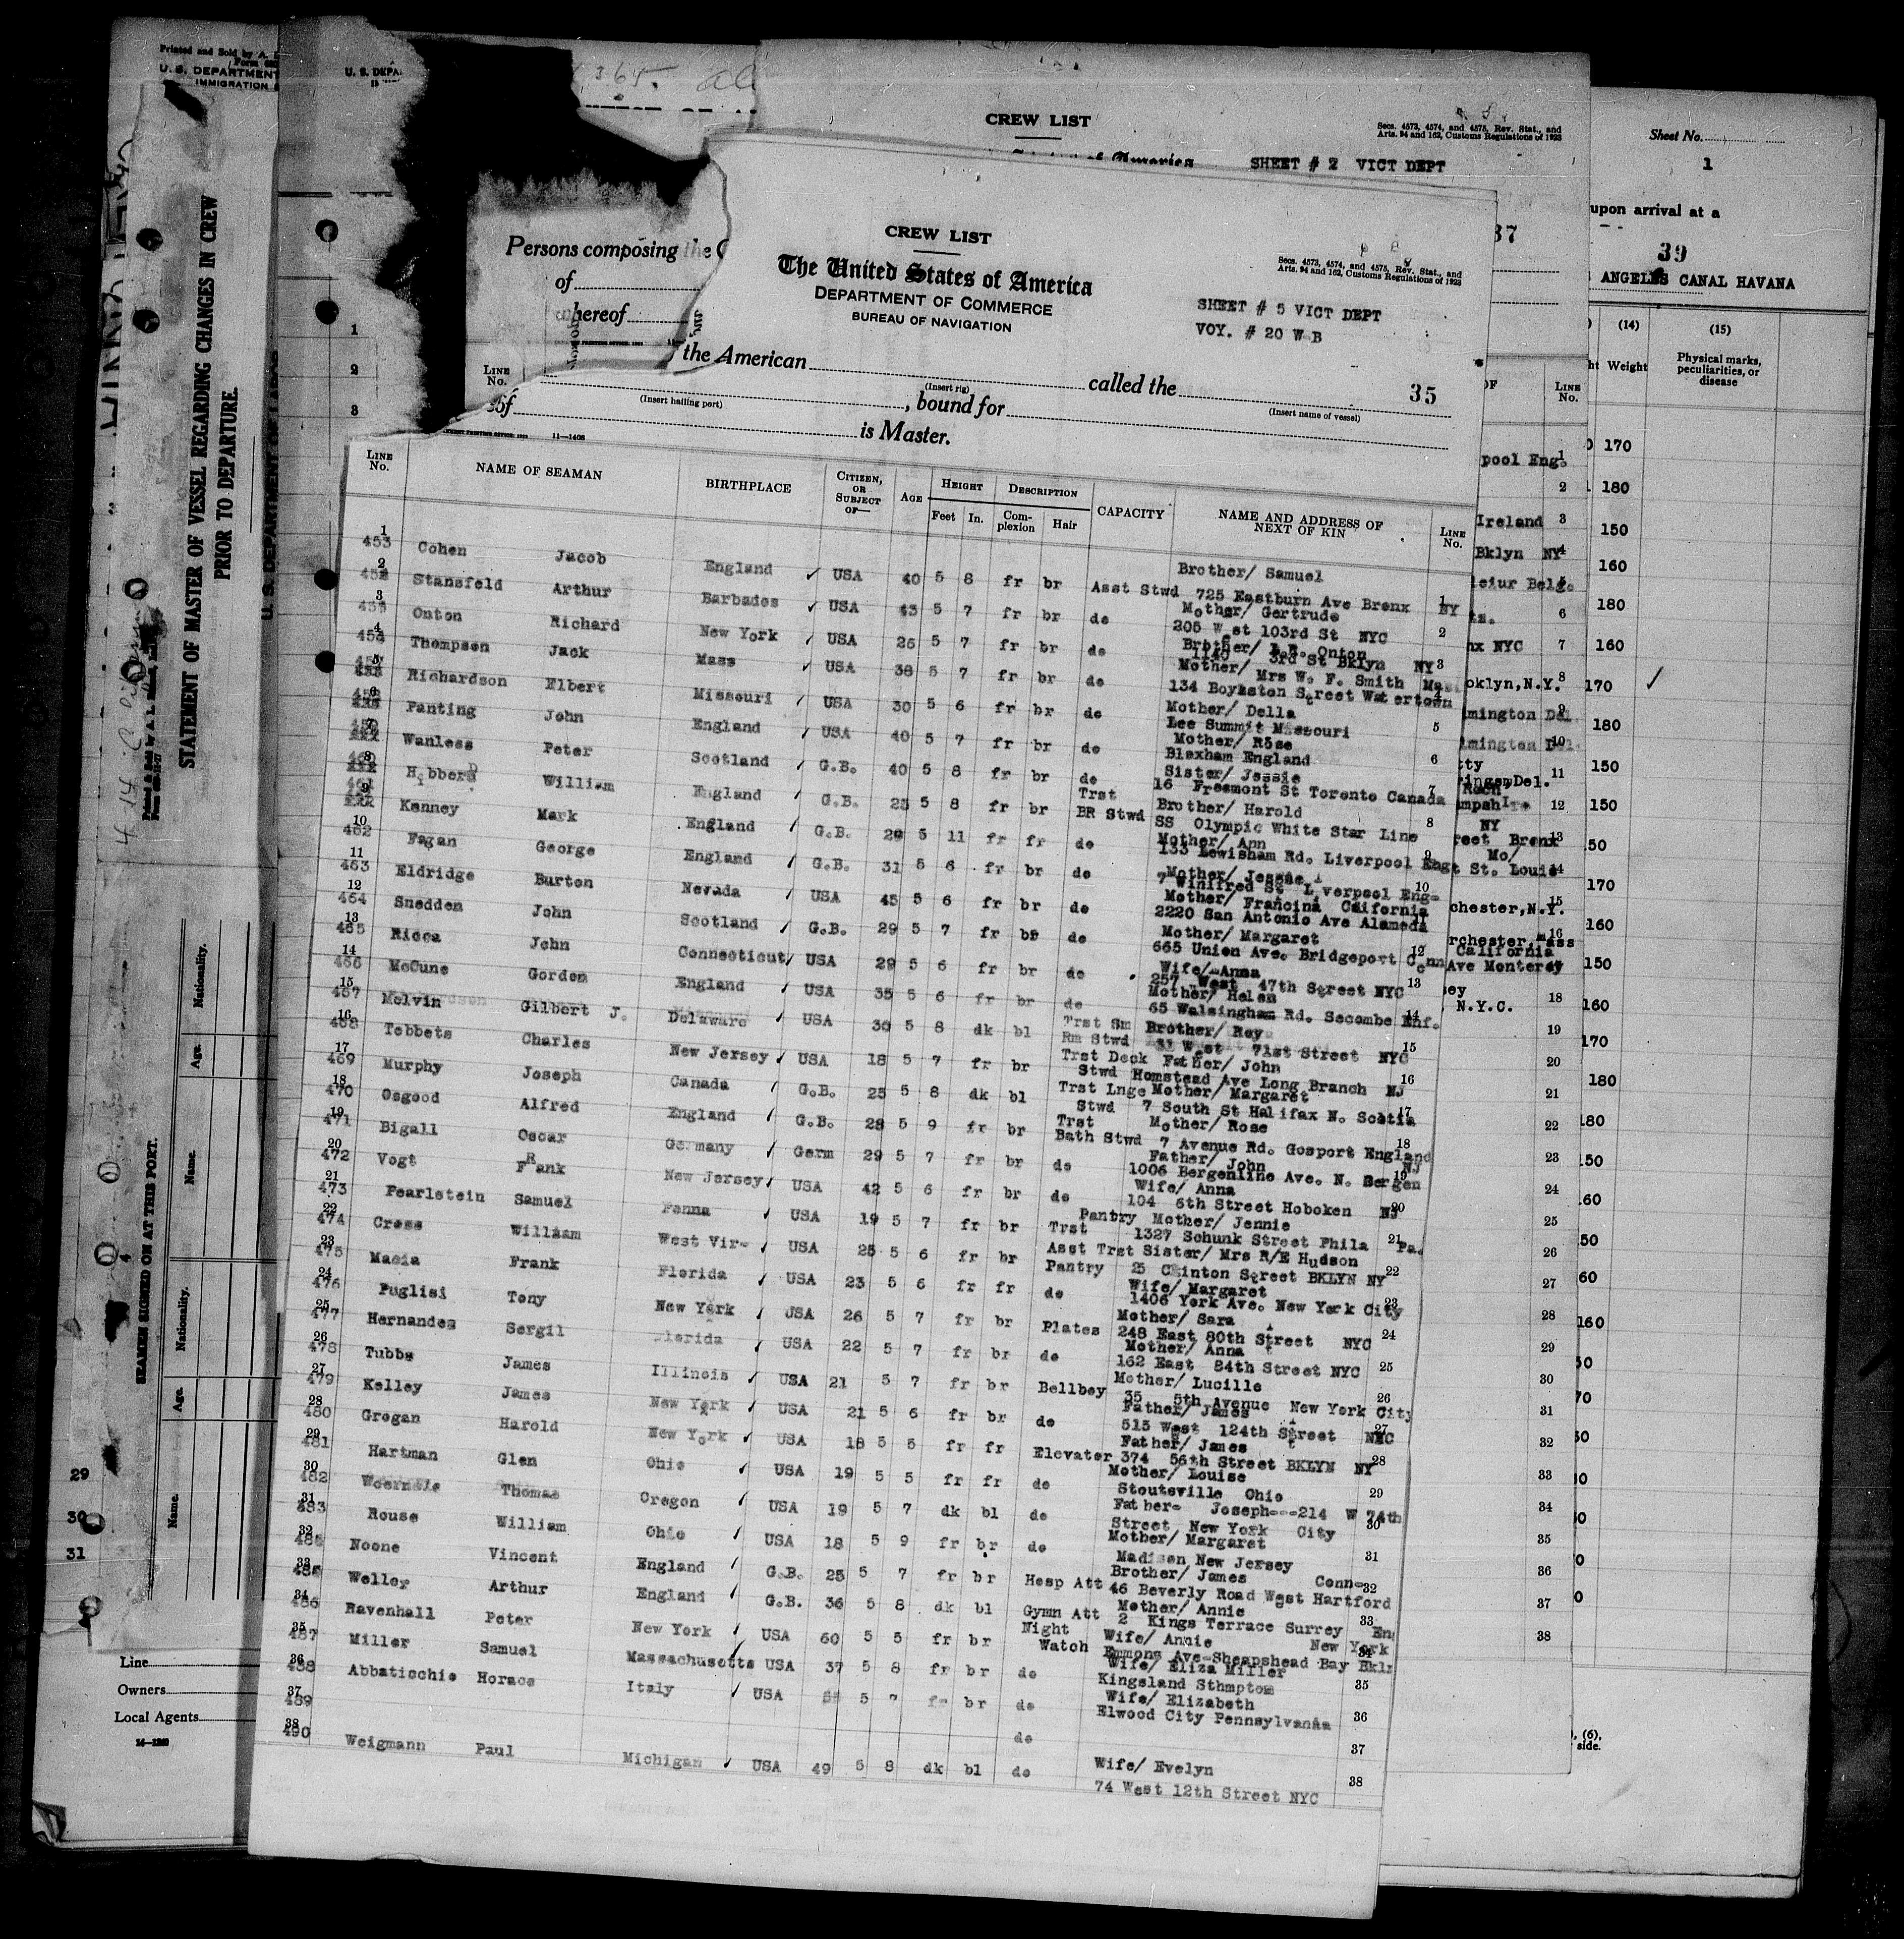 Printed and Sold by A.
U. S. DEPARTMENT
IMMIGRATION
U. S. DEPA
365.
CREW LIST
Secs. 4573, 4574, and 4575, Rev. Stat., and
Arts. 94 and 162, Customs Regulations of 1923
SHEET # 2 VICT DEPT
Sheet No.
1
upon arrival at a
37
39
ANGELES CANAL HAVANA
STATEMENT OF MASTER OF VESSEL REGARDING CHANGES IN CREW
PRIOR TO DEPARTURE.
SEAMEN SIGNED ON AT THIS PORT.
Name. Age. Nationality. Name. Age. Nationality.
Persons composing the C
of
whereof
LINE No.
CREW LIST
The United States of America
DEPARTMENT OF COMMERCE
BUREAU OF NAVIGATION
Secs. 4573, 4574, and 4575, Rev. Stat., and
Arts. 94 and 162, Customs Regulations of 1923
SHEET # 5 VICT DEPT
VOY. # 20 W B
the American called the 35
(Insert rig) (Insert name of vessel)
of , bound for
(Insert hailing port)
is Master.
11—1406
LINE No. NAME OF SEAMAN BIRTHPLACE CITIZEN, OR SUBJECT OF— AGE HEIGHT Feet In. DESCRIPTION Complexion Hair CAPACITY NAME AND ADDRESS OF NEXT OF KIN LINE No.
1 453 Cohen Jacob England ✓ USA 40 5 8 fr br Asst Stwd Brother/ Samuel
725 Eastburn Ave Bronx NY 1
2 Stansfeld Arthur Barbados ✓ USA 43 5 7 fr br do Mother/ Gertrude
205 West 103rd St NYC 2
3 Onton Richard New York ✓ USA 26 5 7 fr br do Brother/ Onton
1140 3rd St Bklyn NY 3
4 Thompson Jack Mass ✓ USA 38 5 7 fr br do Mother/ Mrs W. F. Smith
134 Boylston Street Watertown 4
5 Richardson Elbert Missouri ✓ USA 30 5 6 fr br do Mother/ Della
Lee Summit Missouri 5
6 Panting John England ✓ USA 40 5 7 fr br do Mother/ Rose
Bloxham England 6
7 Wanless Peter Scotland ✓ G.B. 40 5 8 fr br do Sister/ Jessie
16 Freemont St Toronto Canada 7
8 Hibberd William England ✓ G.B. 23 5 8 fr br Trst BR Stwd Brother/ Harold
SS Olympic White Star Line 8
9 461 Kenney Mark England ✓ G.B. 29 5 11 fr fr do Mother/ Ann
133 Lewisham Rd. Liverpool Eng 9
10 462 Fagan George England ✓ G.B. 31 5 6 fr br do Mother/ Jessie
7 Winifred St Liverpool Eng- 10
11 463 Eldridge Burton Nevada ✓ USA 45 5 6 fr br do Mother/ Francina California
2220 San Antonio Ave Alameda 11
12 464 Snedden John Scotland ✓ G.B. 29 5 7 fr br do Mother/ Margaret
665 Union Ave. Bridgeport Conn 12
13 465 Ricca John Connecticut ✓ USA 29 5 6 fr br do Wife/ Anna
257 West 47th Street NYC 13
14 466 McCune Gordon England USA 35 5 6 fr br do Mother/ Helen
65 Walsingham Rd. Secombe Enf. 14
15 467 Melvin Gilbert J. Delaware ✓ USA 30 5 8 dk bl Trst Sm Rm Stwd Brother/ Roy
31 West 71st Street NYC 15
16 468 Tebbets Charles New Jersey ✓ USA 18 5 7 fr br Trst Deck Stwd Father/ John
Homstead Ave Long Branch NJ 16
17 469 Murphy Joseph Canada ✓ G.B. 25 5 8 dk bl Trst Lnge Stwd Mother/ Margaret
7 South St Halifax N. Scotia 17
18 470 Osgood Alfred England ✓ G.B. 28 5 9 fr br Trst Bath Stwd Mother/ Rose
7 Avenue Rd. Gosport England 18
19 471 Bigall Oscar Germany ✓ Germ 29 5 7 fr br do Father/ John NJ
1006 Bergenline Ave. N. Bergen 19
20 472 Vogt Frank New Jersey ✓ USA 42 5 6 fr br do Wife/ Anna
104 6th Street Hoboken NJ 20
21 473 Pearlstein Samuel Penna ✓ USA 19 5 7 fr br Pantry Trst Mother/ Jennie
1327 Schunk Street Phila Pa. 21
22 474 Cross William West Vir- ✓ USA 25 5 6 fr br Asst Trst Pantry Sister/ Mrs R/E Hudson
25 Clinton Street BKLYN NY 22
23 475 Macia Frank Florida ✓ USA 23 5 6 fr fr do Wife/ Margaret
1406 York Ave. New York City 23
24 476 Puglisi Tony New York ✓ USA 26 5 7 fr br Plates Mother/ Sara
248 East 80th Street NYC 24
25 477 Hernandez Sergil Florida ✓ USA 22 5 7 fr br do Mother/ Anna
162 East 84th Street NYC 25
26 478 Tubbs James Illinois ✓ USA 21 5 7 fr br Bellboy Mother/ Lucille
35 5th Avenue New York City 26
27 479 Kelley James New York ✓ USA 21 5 6 fr br do Father/ James
515 West 124th Street NYC 27
28 480 Grogan Harold New York ✓ USA 18 5 5 fr fr Elevator Father/ James
374 56th Street BKLYN NY 28
29 481 Hartman Glen Ohio ✓ USA 19 5 5 fr fr do Mother/ Louise
Stoutsville Ohio 29
30 482 Thomas Oregon ✓ USA 19 5 7 dk bl do Father- Joseph---214 W 74th
Street New York City 30
31 483 Rouse William Ohio ✓ USA 18 5 9 fr br do Mother/ Margaret
Madison New Jersey 31
32 Noone Vincent England ✓ G.B. 25 5 7 fr br Hosp Att Brother/ James Conn-
46 Beverly Road West Hartford 32
33 Weller Arthur England ✓ G.B. 36 5 8 dk bl Gymn Att Mother/ Annie
2 Kings Terrace Surrey Eng 33
34 486 Ravenhall Peter New York ✓ USA 60 5 5 fr br Night Watch Wife/ Annie New York
Emmons Ave Sheapshead Bay Bkln 34
35 487 Miller Samuel Massachusetts USA 37 5 8 fr br do Wife/ Eliza Miller
Kingsland Sthmptom 35
36 488 Abbaticchio Horace Italy ✓ USA 5 7 fr br do Wife/ Elizabeth
Elwood City Pennsylvania 36
37 489 do 37
38 490 Weigmann Paul Michigan ✓ USA 49 5 8 dk bl do Wife/ Evelyn
74 West 12th Street NYC 38
(14) (15)
Weight Physical marks, peculiarities, or disease
LINE No.
pool Eng. 1 170
2 180
Ireland 3 150
Bklyn NY 4 160
5 180
6 160
nx NYC 7
oklyn,N.Y. 8 170 ✓
mington Del 9 180
mington Del 10 150
11 150
12
NY
reet Bronx 13 50
St. Louis 14 170
chester,N.Y. 15 160
rchester Mass 16
California
Ave Monterey 150
sey
N.Y.C. 18 160
19 170
20 180
21
22 180
23 150
24 160
25 50
26 60
27
28 160
29
30
31
32
33
34
35
36
37
38
29
30
31
Line
Owners
Local Agents
, (6),
side.